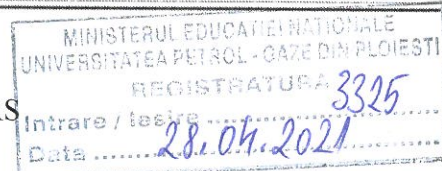 MINISTERUL EDUCAȚIEI NAȚIONALE
UNIVERSITATEA PETROL - GAZE DIN PLOIESTI
REGISTRATURA 3325
AS
Intrare / Iesire
Data ........ 28.04.2021